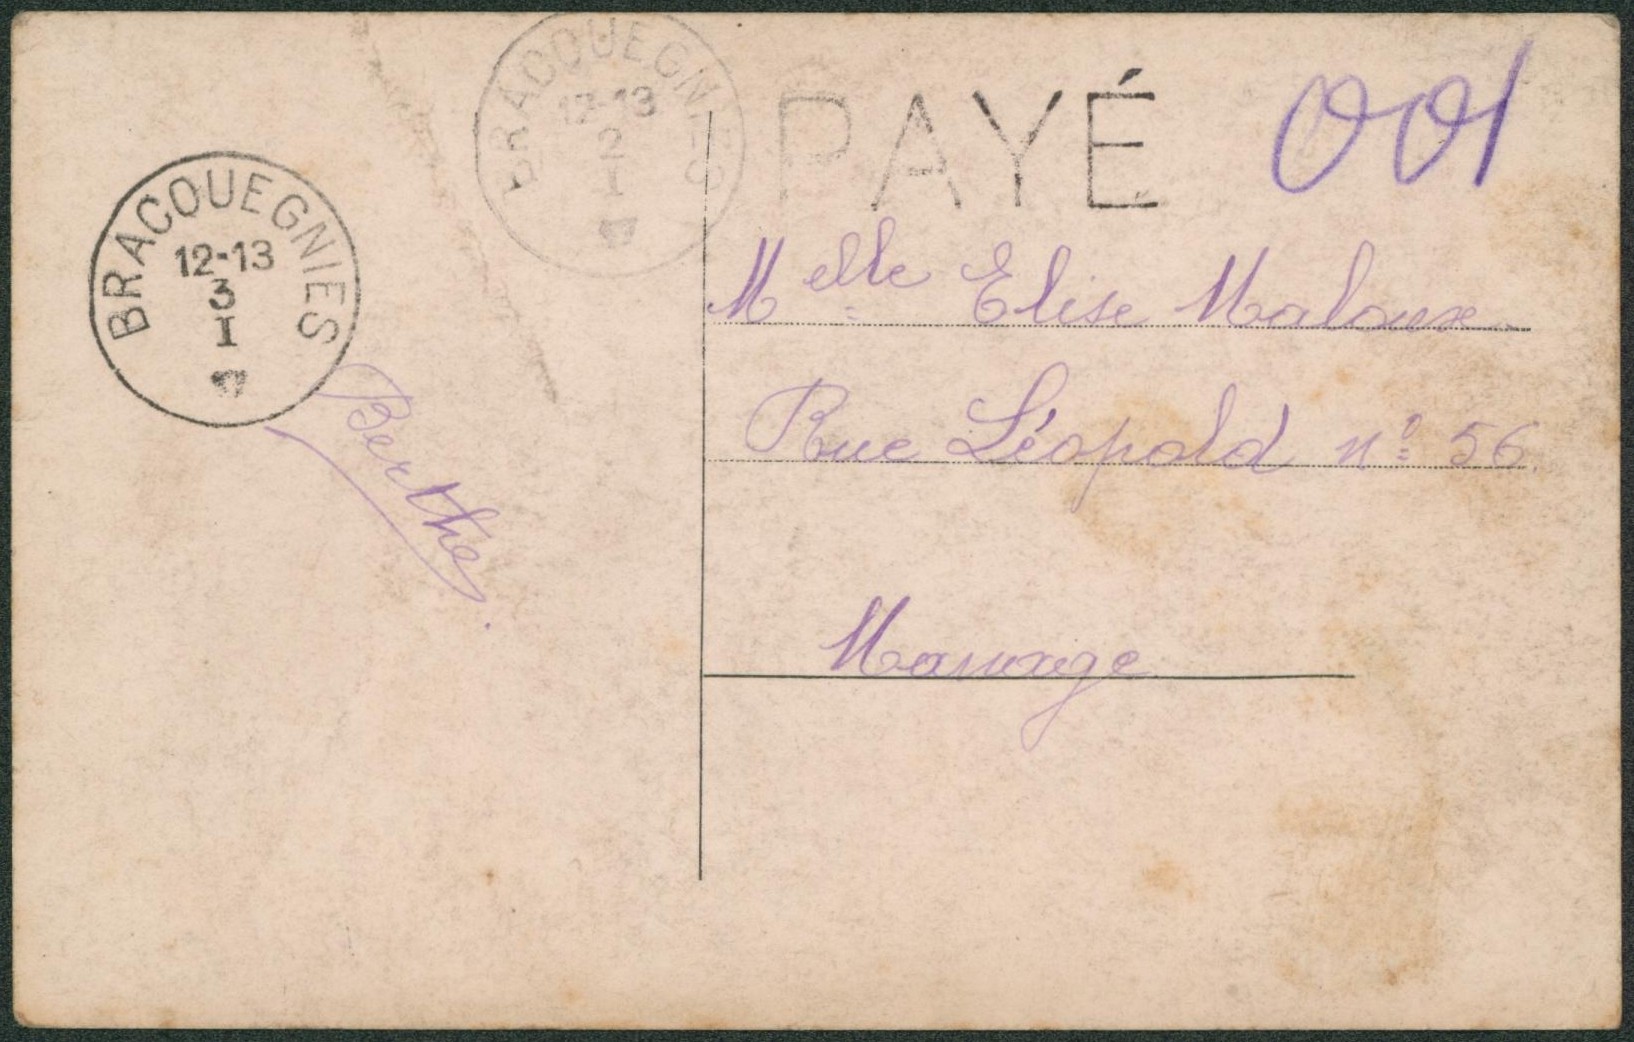 BRACQUEGNIES
12-13
2
I
PAYÉ
001
BRACQUEGNIES
12-13
3
I
Melle Elise Maloux
Rue Léopold n° 56
Maurage
Berthe.